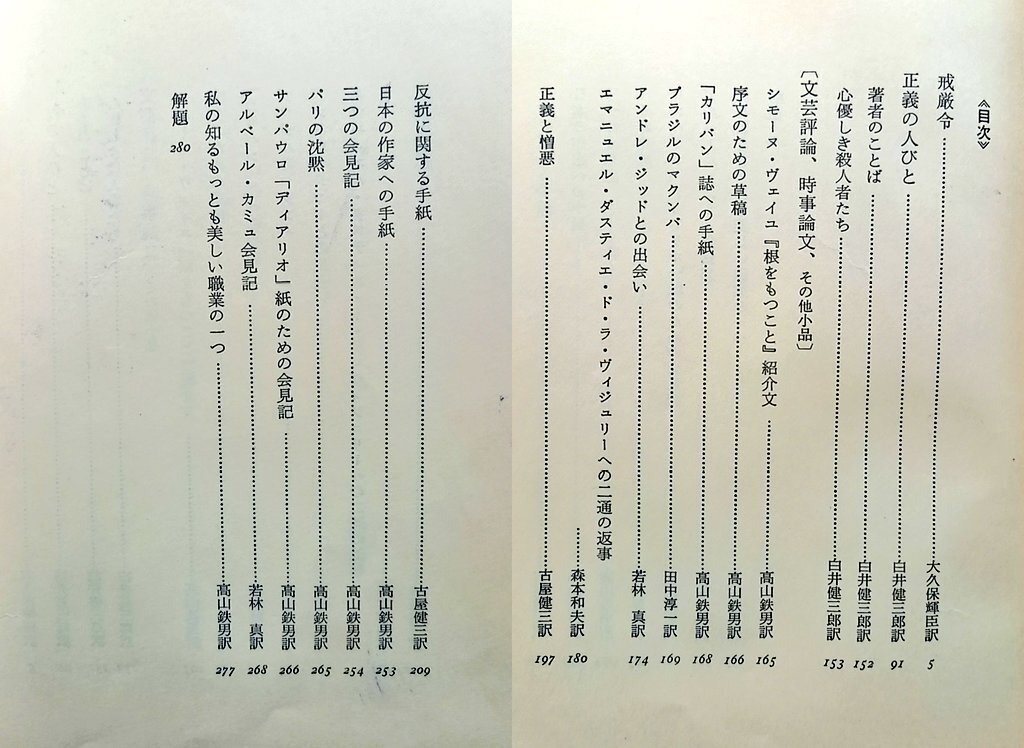 《目次》
戒厳令……大久保輝臣訳 5
正義の人びと……白井健三郎訳 91
著者のことば……白井健三郎訳 152
心優しき殺人者たち……白井健三郎訳 153
〔文芸評論、時事論文、その他小品〕
シモーヌ・ヴェイユ『根をもつこと』紹介文……高山鉄男訳 165
序文のための草稿……高山鉄男訳 166
「カリバン」誌への手紙……高山鉄男訳 168
ブラジルのマクンバ……田中淳一訳 169
アンドレ・ジッドとの出会い……若林 真訳 174
エマニュエル・ダスティエ・ド・ラ・ヴィジュリーへの二通の返事
……森本和夫訳 180
正義と憎悪……古屋健三訳 197
反抗に関する手紙……古屋健三訳 209
日本の作家への手紙……高山鉄男訳 253
三つの会見記……高山鉄男訳 254
パリの沈黙……高山鉄男訳 265
サンパウロ「ディアリオ」紙のための会見記……高山鉄男訳 266
アルベール・カミュ会見記……若林 真訳 268
私の知るもっとも美しい職業の一つ……高山鉄男訳 277
解題 280